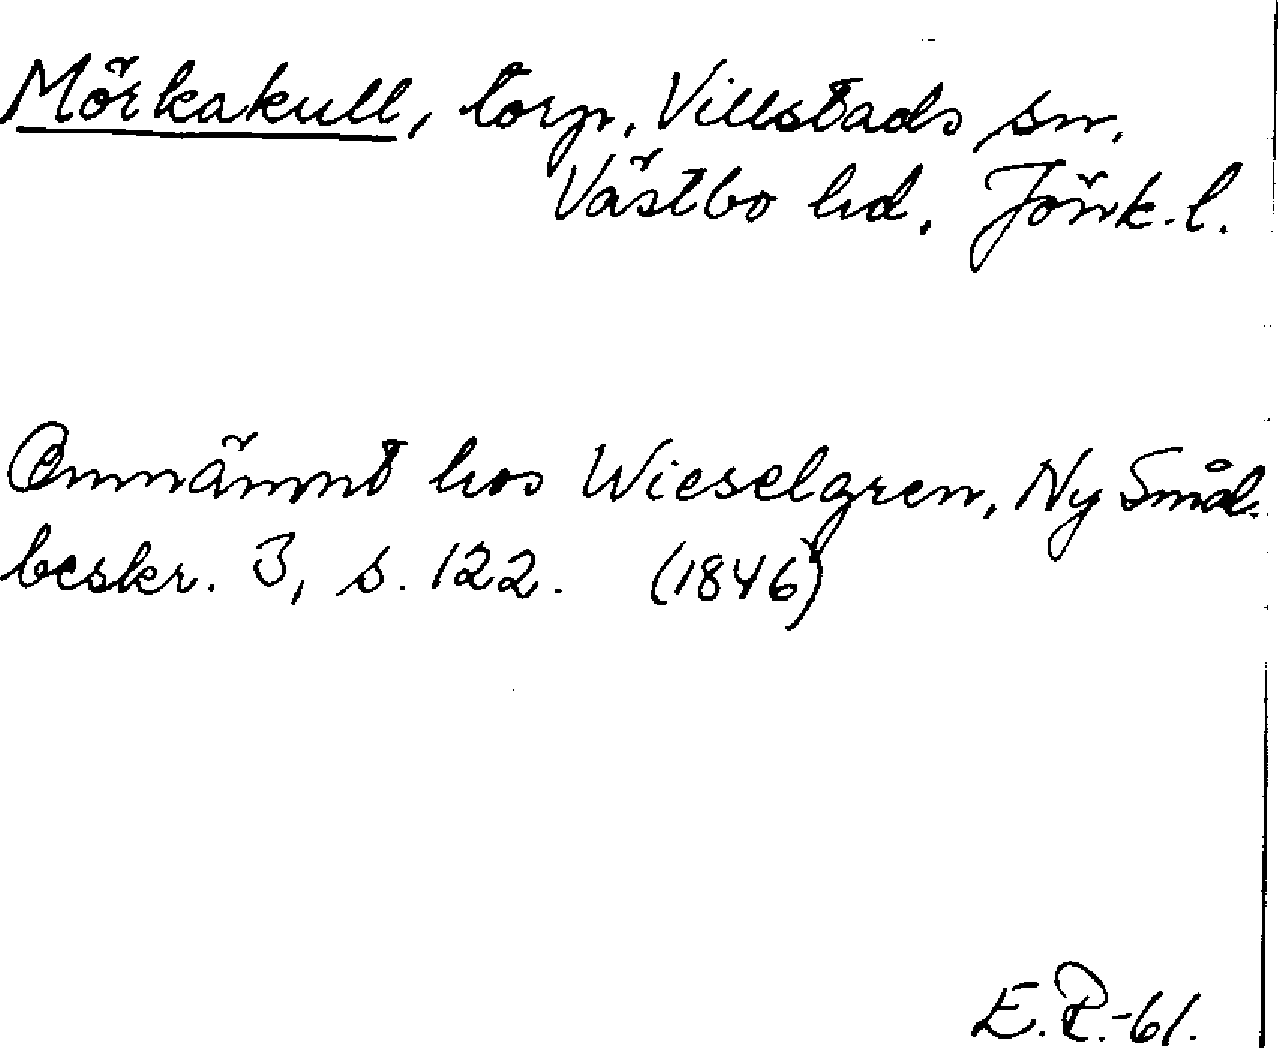 Mörkakull, torp, Villstads sn.
Västbo hd, Jönk.l.
Omnämnt hos Wieselgren, Ny Smål.
beskr. 3, s. 122. (1846)
E.R.-61.